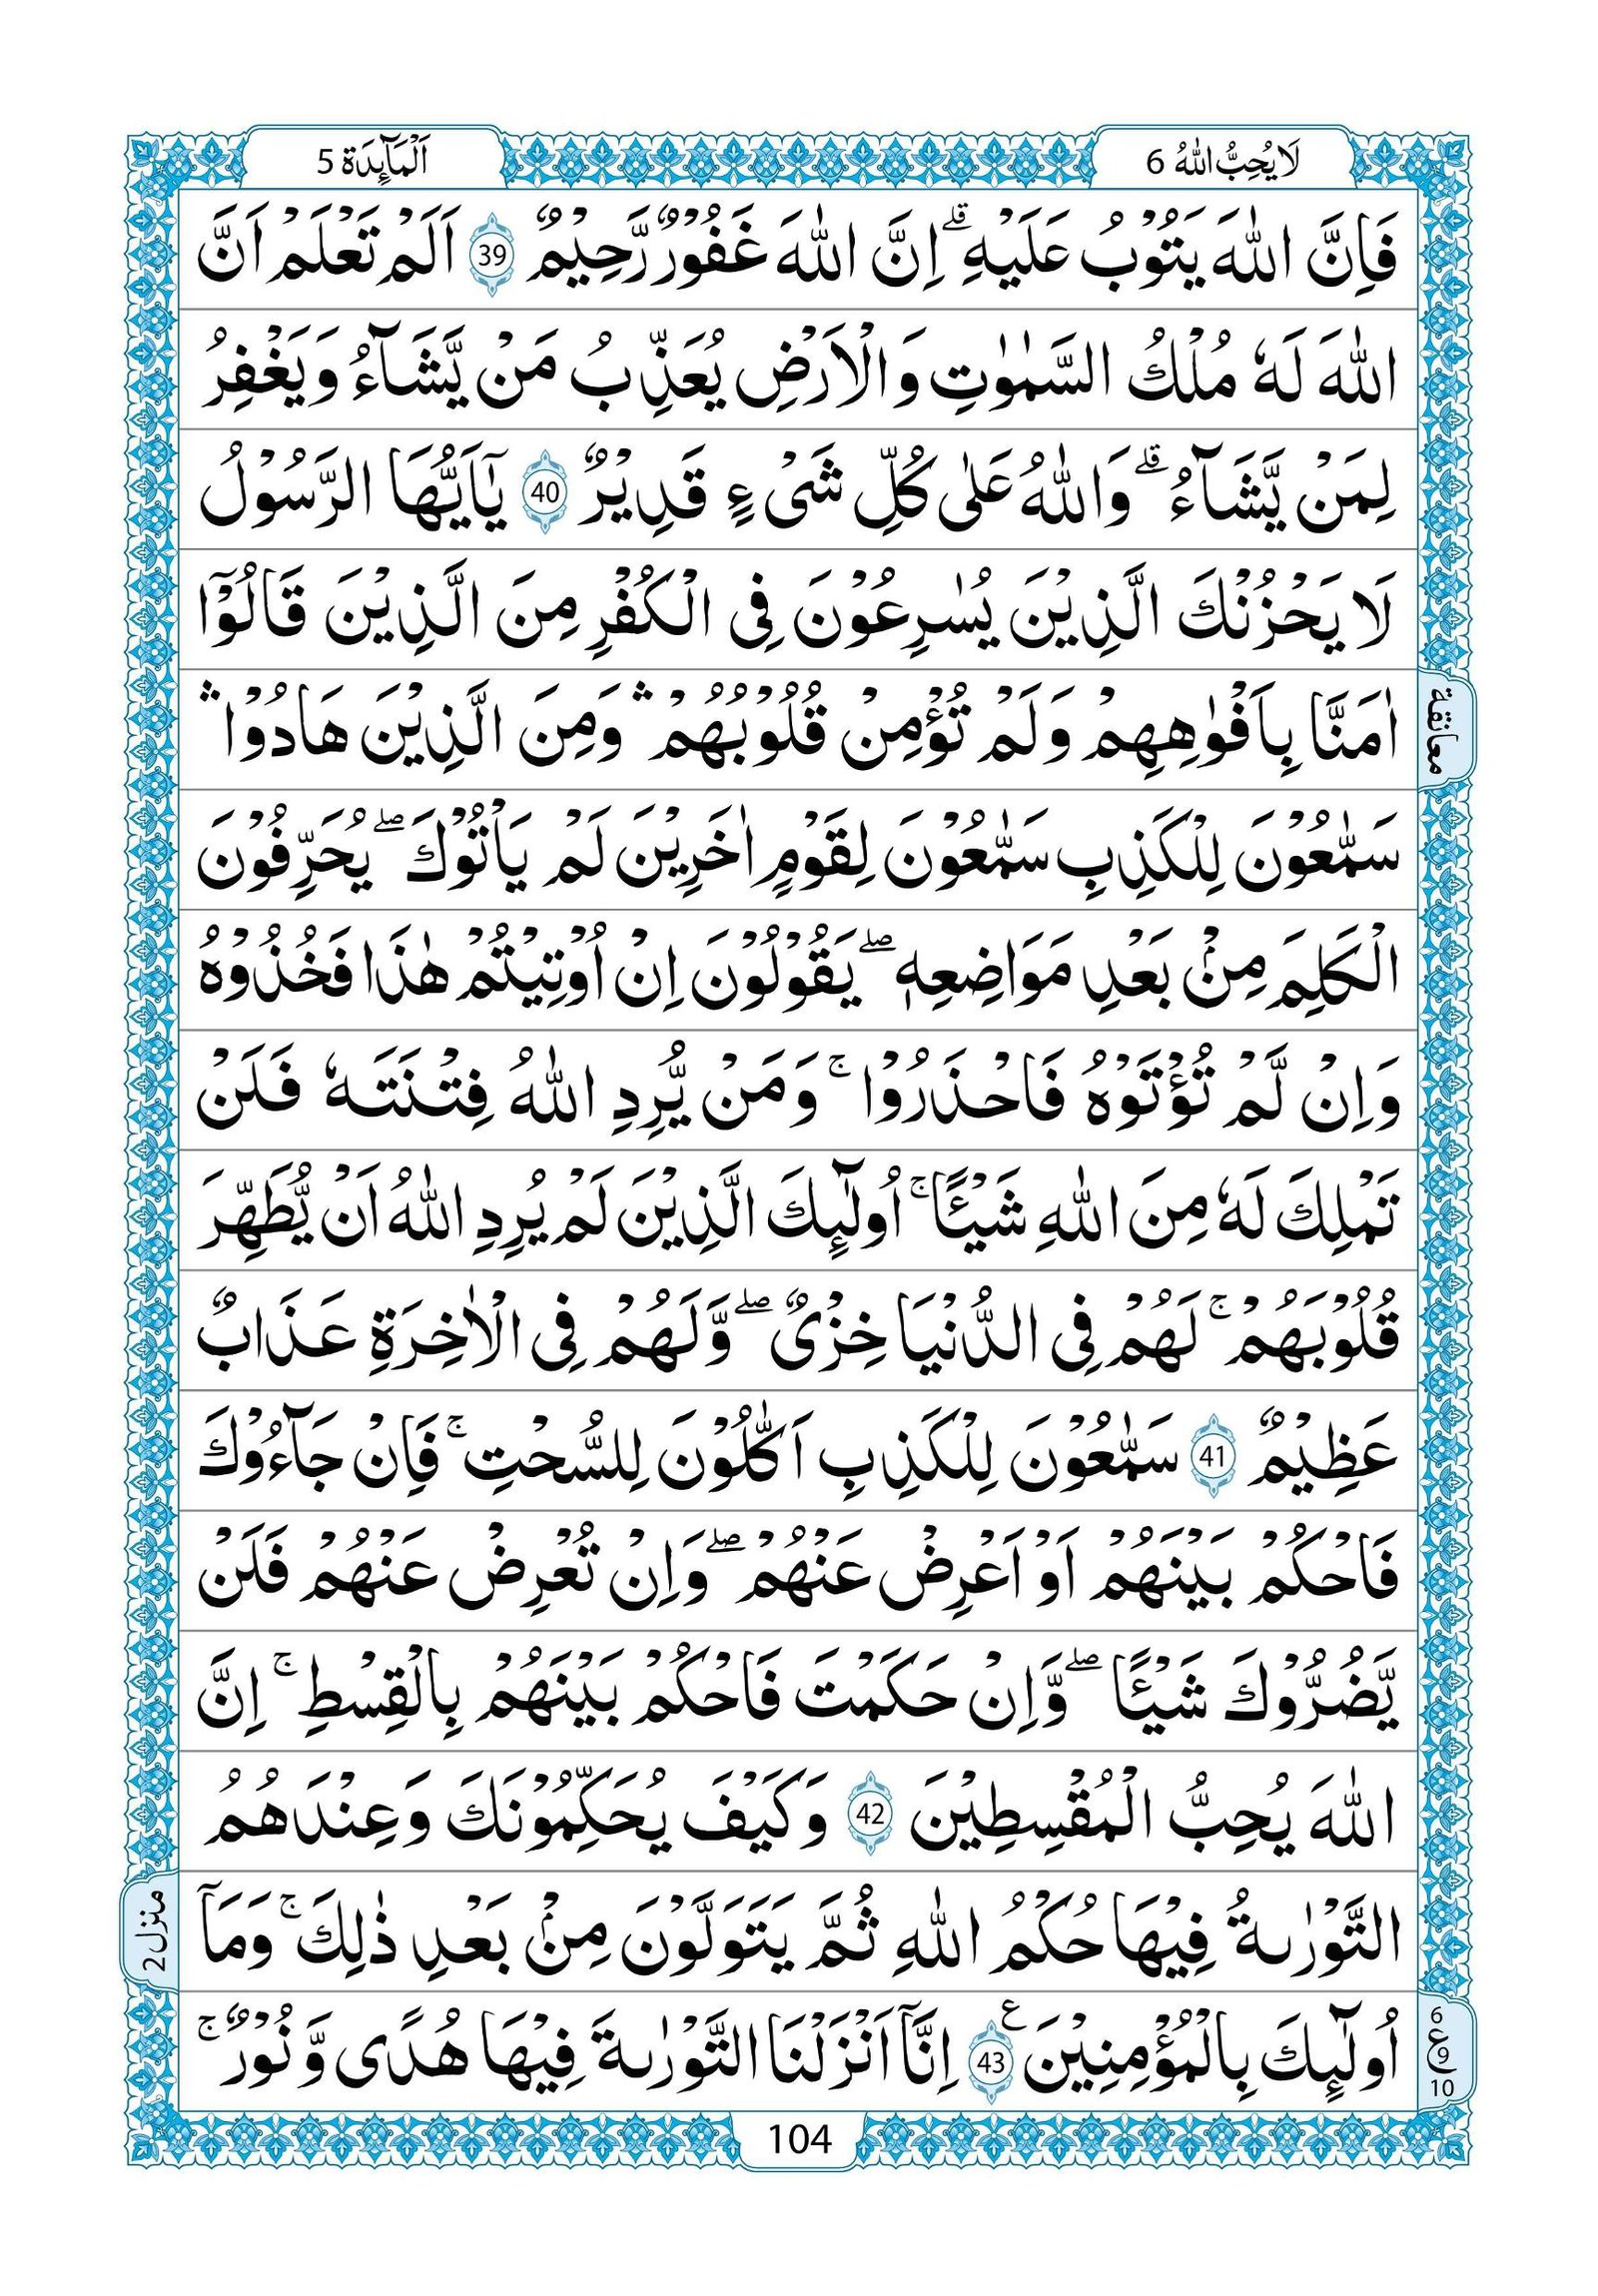 لَا يُحِبُّ اللّٰهُ 6
اَلْمَآئِدَة 5
فَاِنَّ اللّٰهَ يَتُوْبُ عَلَيْهِ ؕ اِنَّ اللّٰهَ غَفُوْرٌ رَّحِيْمٌ 39 اَلَمْ تَعْلَمْ اَنَّ
اللّٰهَ لَهٗ مُلْكُ السَّمٰوٰتِ وَالْاَرْضِ يُعَذِّبُ مَنْ يَّشَآءُ وَيَغْفِرُ
لِمَنْ يَّشَآءُ ۗ وَاللّٰهُ عَلٰى كُلِّ شَىْءٍ قَدِيْرٌ 40 يٰۤاَيُّهَا الرَّسُوْلُ
لَا يَحْزُنْكَ الَّذِيْنَ يُسٰرِعُوْنَ فِى الْكُفْرِ مِنَ الَّذِيْنَ قَالُوْۤا
اٰمَنَّا بِاَفْوٰهِهِمْ وَلَمْ تُؤْمِنْ قُلُوْبُهُمْ ۛ وَمِنَ الَّذِيْنَ هَادُوْا ۛ
سَمّٰعُوْنَ لِلْكَذِبِ سَمّٰعُوْنَ لِقَوْمٍ اٰخَرِيْنَ لَمْ يَاْتُوْكَ ۖ يُحَرِّفُوْنَ
الْكَلِمَ مِنْۢ بَعْدِ مَوَاضِعِهٖ ۖ يَقُوْلُوْنَ اِنْ اُوْتِيْتُمْ هٰذَا فَخُذُوْهُ
وَاِنْ لَّمْ تُؤْتَوْهُ فَاحْذَرُوْا ۚ وَمَنْ يُّرِدِ اللّٰهُ فِتْنَتَهٗ فَلَنْ
تَمْلِكَ لَهٗ مِنَ اللّٰهِ شَيْـًٔا ۚ اُولٰٓئِكَ الَّذِيْنَ لَمْ يُرِدِ اللّٰهُ اَنْ يُّطَهِّرَ
قُلُوْبَهُمْ ۚ لَهُمْ فِى الدُّنْيَا خِزْىٌ ۖ وَّلَهُمْ فِى الْاٰخِرَةِ عَذَابٌ
عَظِيْمٌ 41 سَمّٰعُوْنَ لِلْكَذِبِ اَكّٰلُوْنَ لِلسُّحْتِ ۚ فَاِنْ جَآءُوْكَ
فَاحْكُمْ بَيْنَهُمْ اَوْ اَعْرِضْ عَنْهُمْ ۖ وَاِنْ تُعْرِضْ عَنْهُمْ فَلَنْ
يَّضُرُّوْكَ شَيْـًٔا ۖ وَّاِنْ حَكَمْتَ فَاحْكُمْ بَيْنَهُمْ بِالْقِسْطِ ۚ اِنَّ
اللّٰهَ يُحِبُّ الْمُقْسِطِيْنَ 42 وَكَيْفَ يُحَكِّمُوْنَكَ وَعِنْدَهُمُ
التَّوْرٰىةُ فِيْهَا حُكْمُ اللّٰهِ ثُمَّ يَتَوَلَّوْنَ مِنْۢ بَعْدِ ذٰلِكَ ۚ وَمَآ
اُولٰٓئِكَ بِالْمُؤْمِنِيْنَ 43 ع اِنَّآ اَنْزَلْنَا التَّوْرٰىةَ فِيْهَا هُدًى وَّنُوْرٌ ۚ
معانقة
منزل 2
6
ع 9
10
104